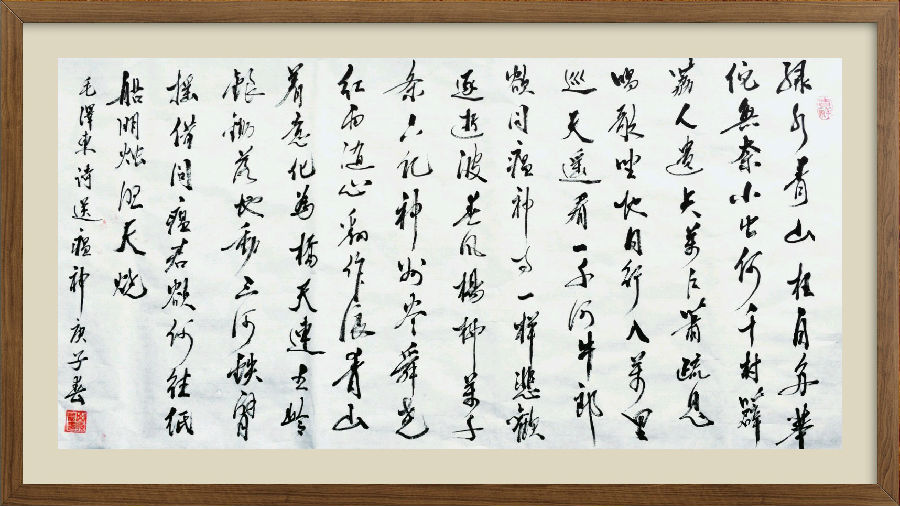 绿水青山枉自多華
佗無奈小虫何千村薜
荔人遗矢萬户蕭疏鬼
唱歌坐地日行八萬里
巡天遥看一千河牛郎
欲问瘟神事一样悲歡
逐逝波春风楊柳萬千
条六亿神州尽舜尧
红雨随心翻作浪青山
着意化為橋天連五岭
银锄落地動三河铁臂
摇借问瘟君欲何往纸
船明烛照天烧
毛澤東诗送瘟神 庚子春